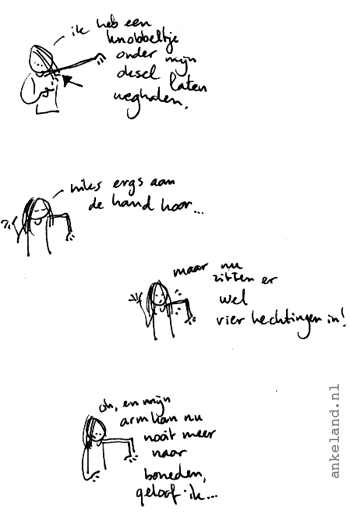 ik heb een
knobbeltje
onder mijn
oksel laten
weghalen.
niks ergs aan
de hand hoor...
maar nu
zitten er
wel
vier hechtingen in!
oh, en mijn
arm kan nu
nooit meer
naar
beneden,
geloof ik...
ankeland.nl